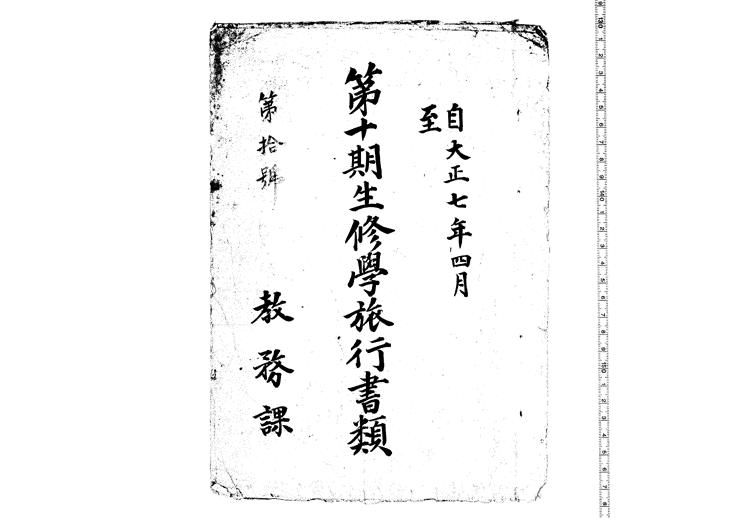 自大正七年四月
至
第十期生修學旅行書類
第拾號
教務課